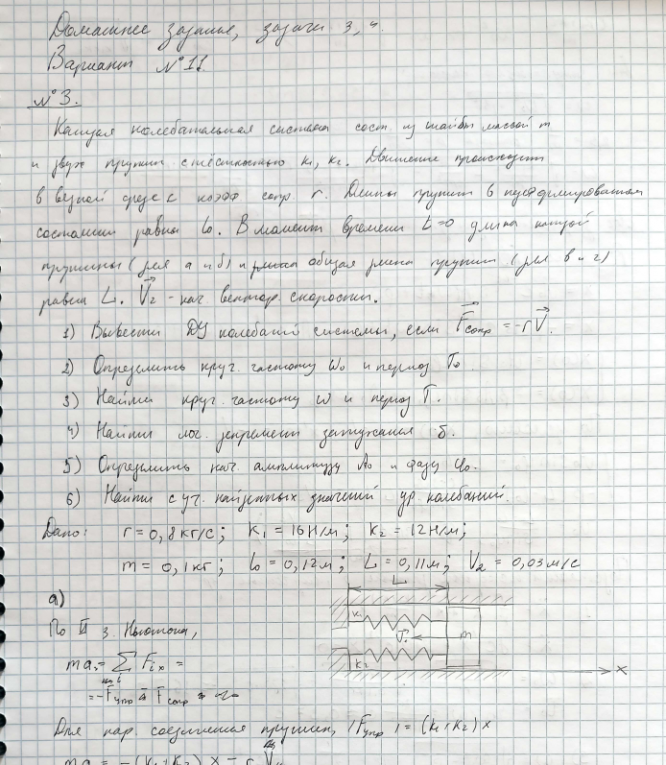 Домашнее задание, задачи 3, 4
Вариант №11
№3.
Каждая колебательная система сост. из шайбы массой m
и двух пружин с жёсткостью k₁, k₂. Движение происходит
в вязкой среде с коэфф сопр r. Длины пружин в недеформированом
состоянии равны l₀. В момент времени t=0 длина каждой
пружины (для а и б) и общая длина пружин (для в и г)
равна L. V₂ - нач вектор скорости.
1) Вывести ДУ колебаний системы, если F⃗сопр = -rV⃗.
2) Определить круг. частоту ω₀ и период T₀
3) Найти круг. частоту ω и период T.
4) Найти лог. декремент затухания δ.
5) Определить нач. амплитуду A₀ и фазу φ₀.
6) Найти с уч. найденных значений ур. колебаний.
Дано: r=0,8кг/с; k₁=16Н/м; k₂=12Н/м;
m=0,1кг; l₀=0,12м; L=0,11м; V₂=0,03м/с
а)
L
k₁
V⃗
m
k₂
x
По II з. Ньютона,
ma = ∑ Fᵢₓ =
= -Fупр Fсопр
Для пар. соединения пружин, |Fупр| = (k₁+k₂)x
ma = -(k₁+k₂)x - r V